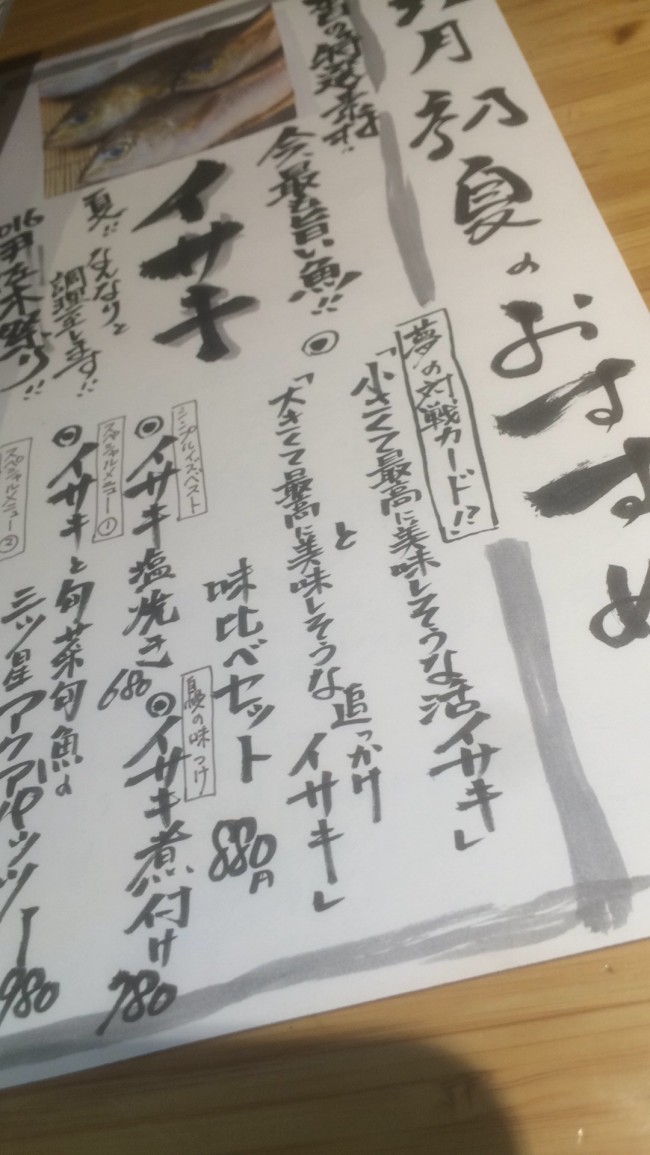 月初夏のおすすめ
今、最も旨い魚!!
イサキ
夏だ なんなりと
調理致します!!
2016
祭り!!
夢の対戦カード!?
「小さくて最高に美味しそうな活イサキ」
と
◎「大きくて最高に美味しそうな追っかけイサキ」
味比べセット 880円
シンプルイズベスト
◎イサキ塩焼き 680
自慢の味つけ
◎イサキ煮付け 780
スペシャルメニュー①
◎イサキと旬菜旬魚の
三ツ星アクアパッツァー 980
スペシャルメニュー②